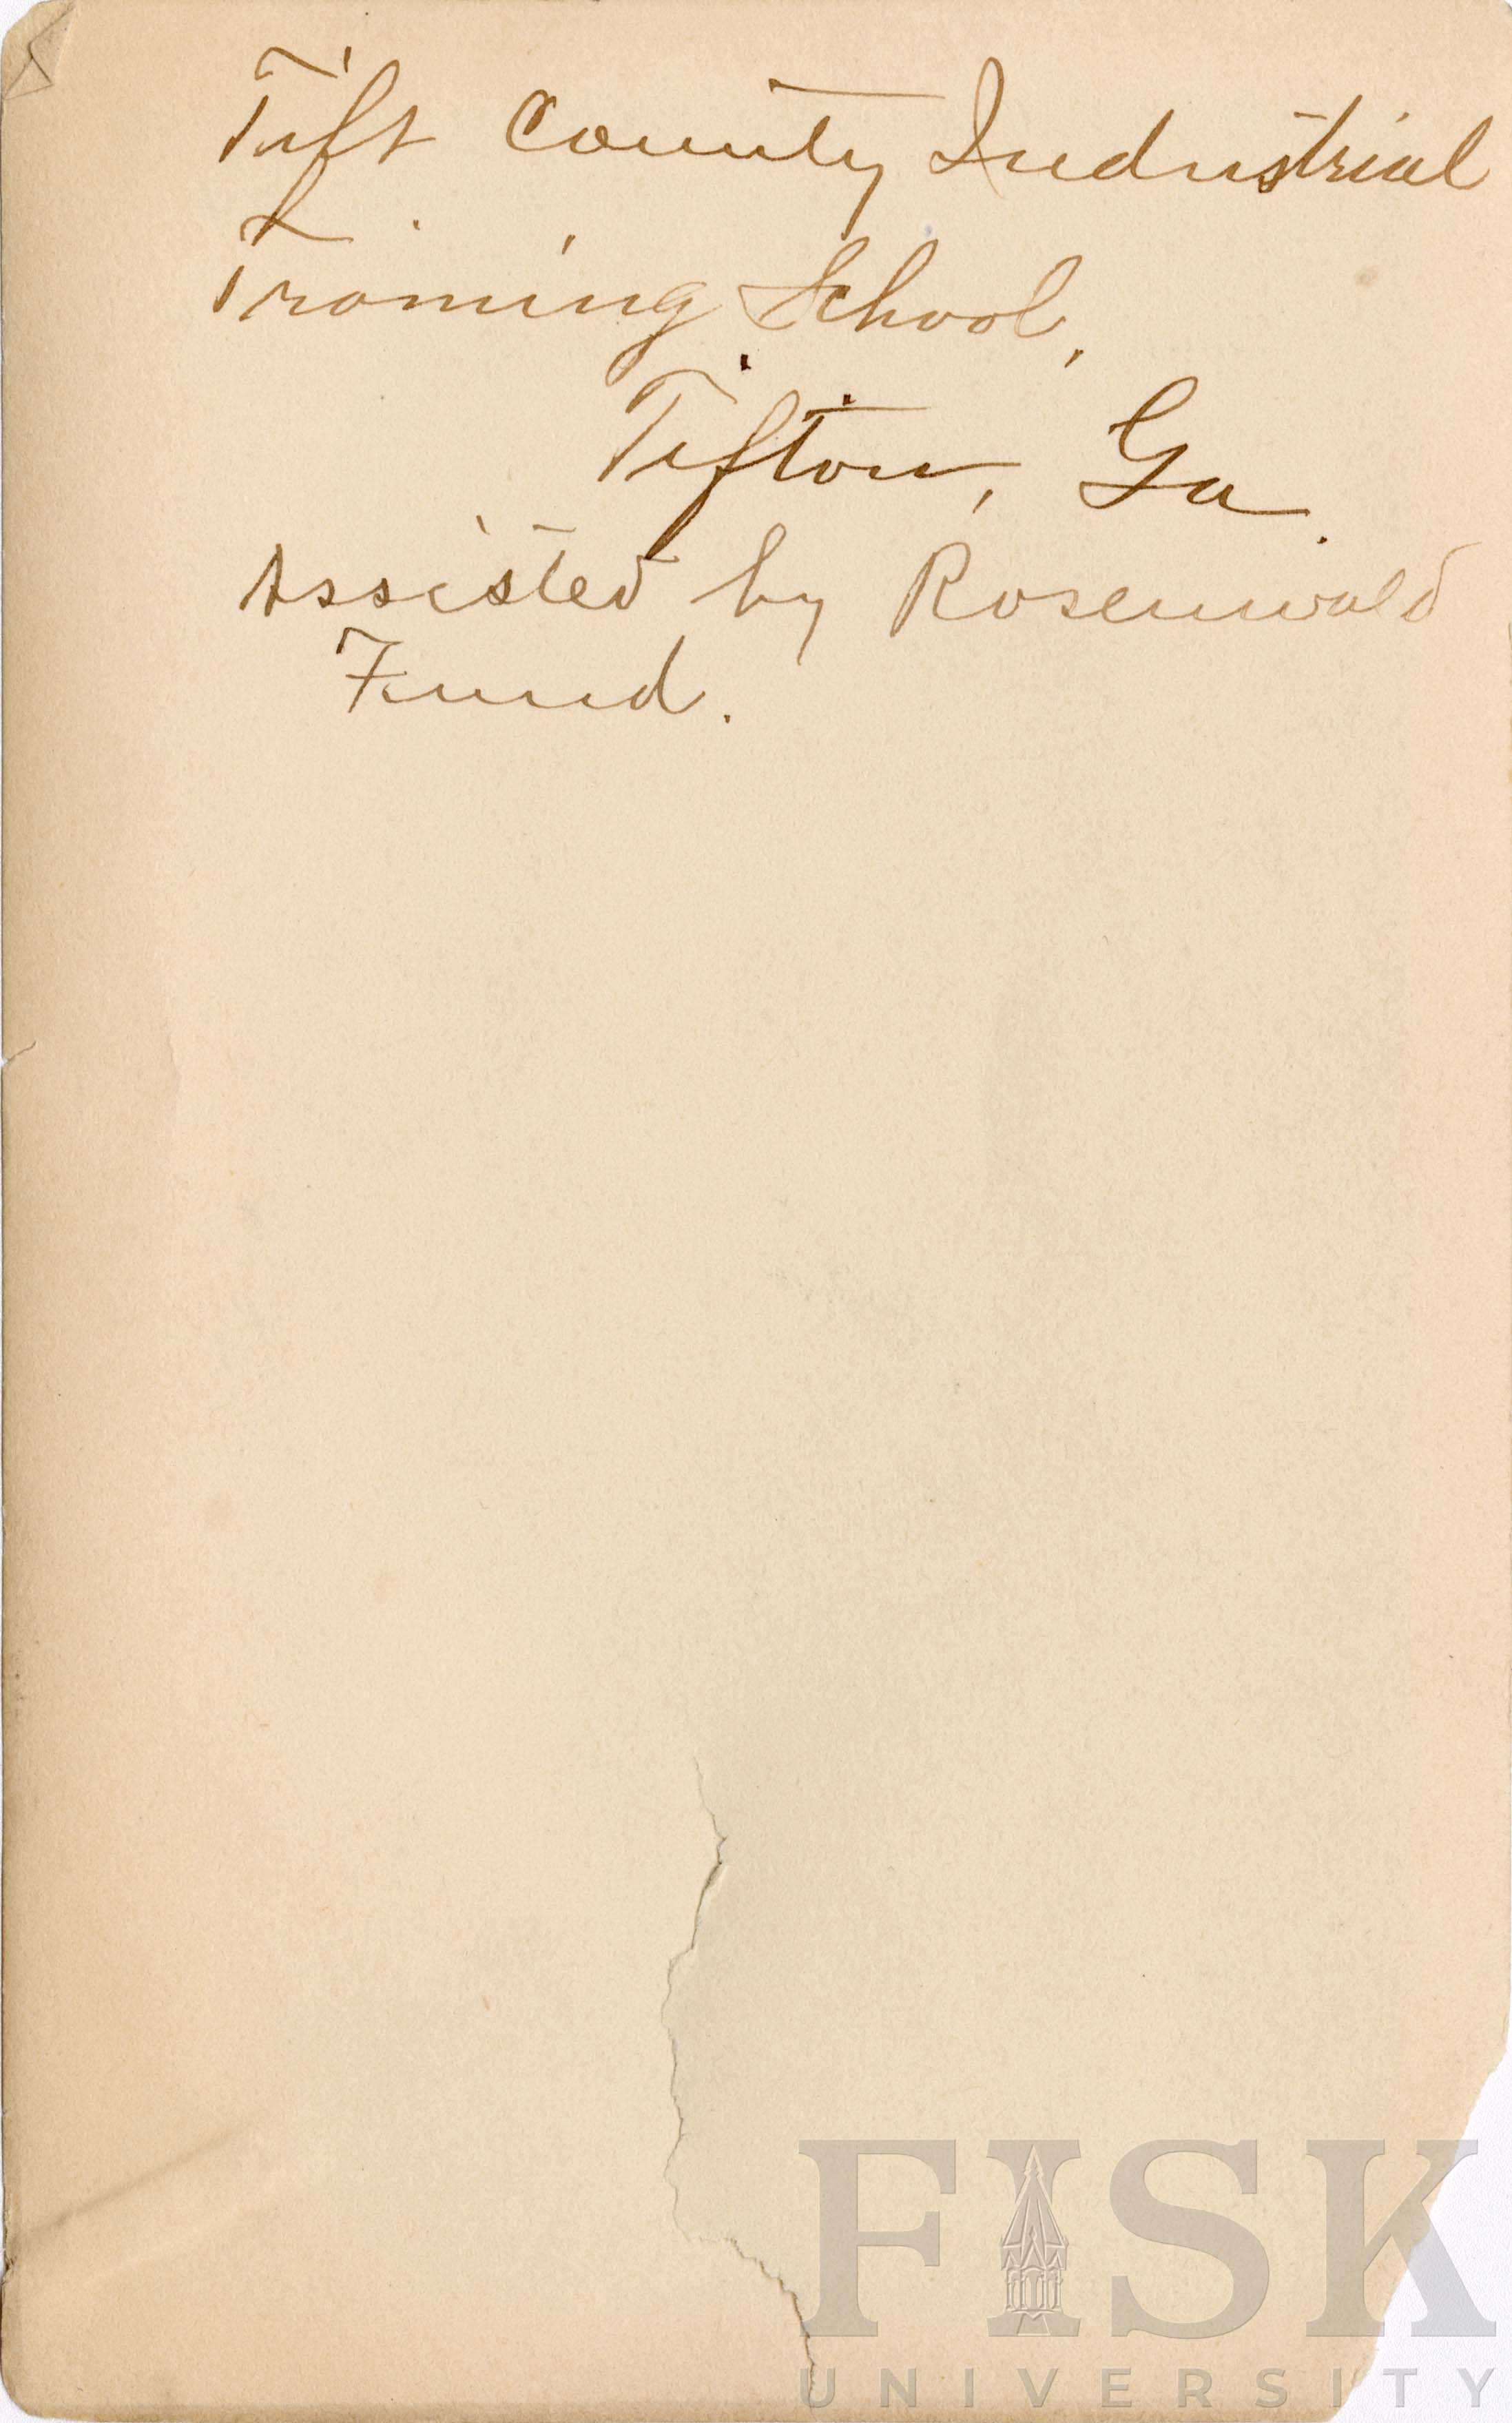 Tift County Industrial
Training School,
Tifton, Ga.
Assisted by Rosenwald
Fund.
FISK
UNIVERSITY